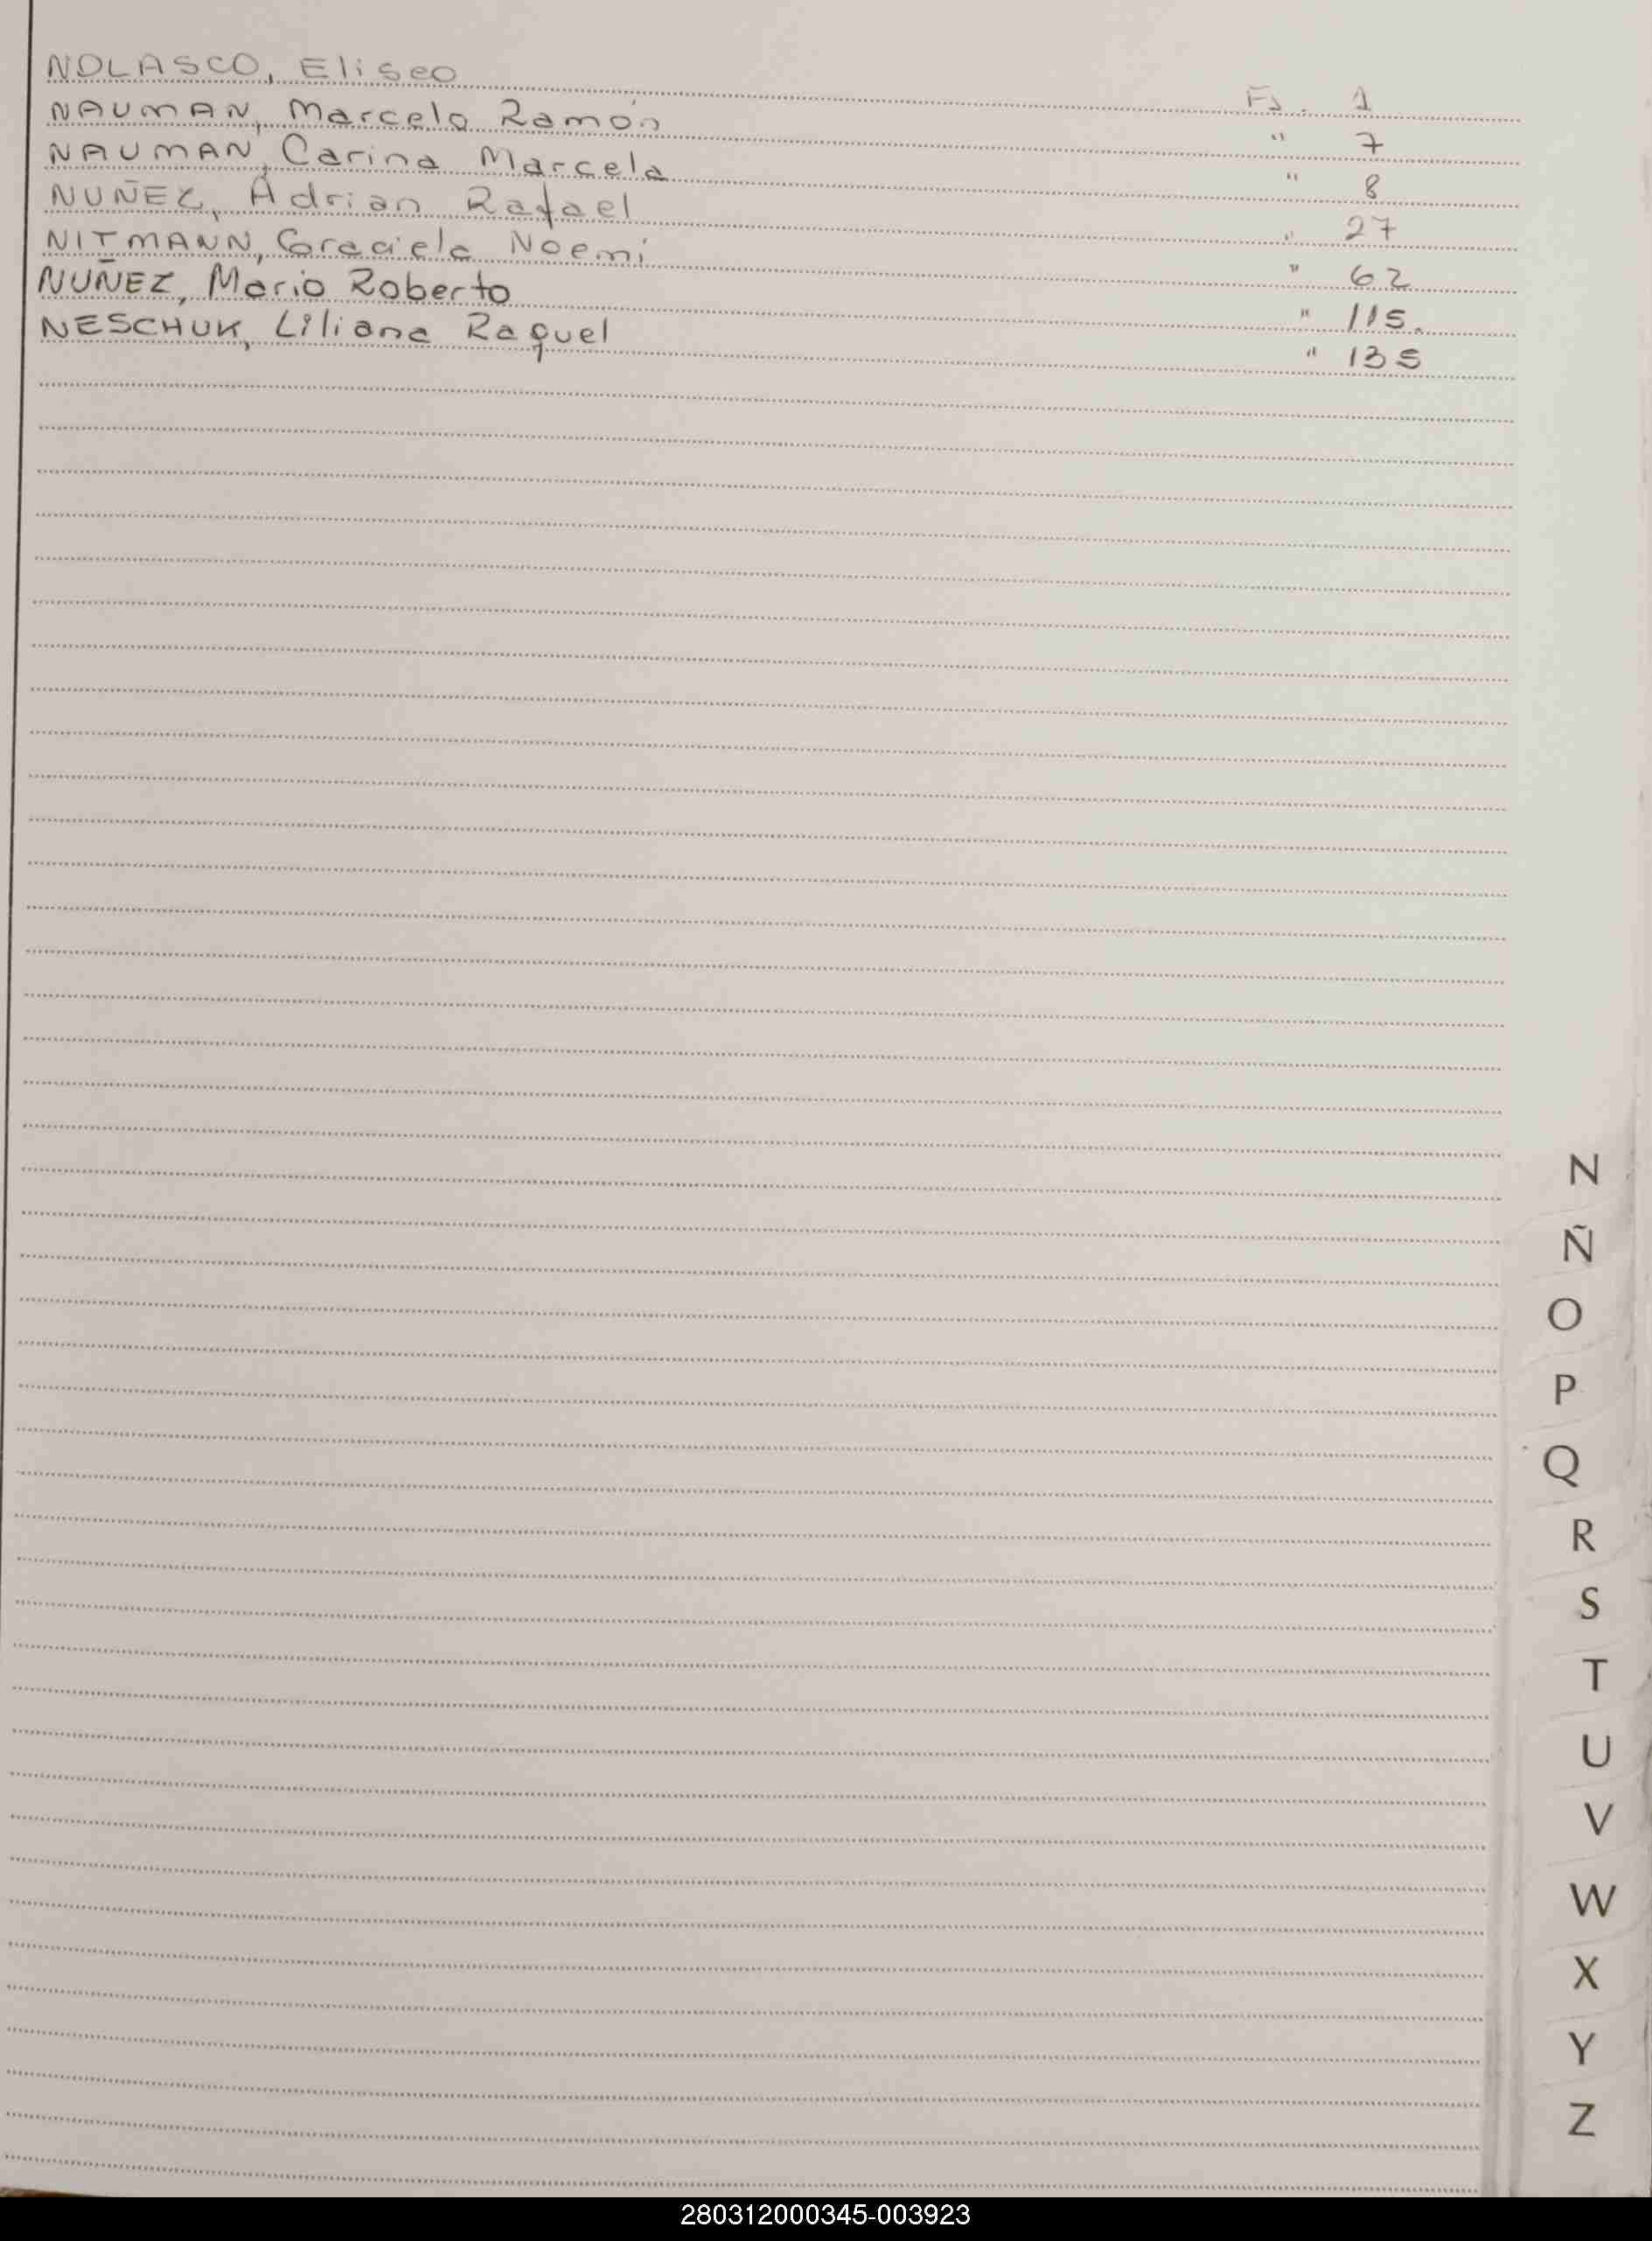 NOLASCO, Eliseo Fs. 1
NAUMAN, Marcelo Ramón " 7
NAUMAN, Carina Marcela " 8
NUÑEZ, Adrian Rafael " 27
NITMANN, Graciela Noemi " 62
NUÑEZ, Mario Roberto " 115.
NESCHUK, Liliana Raquel " 135
N
Ñ
O
P
Q
R
S
T
U
V
W
X
Y
Z
280312000345-003923